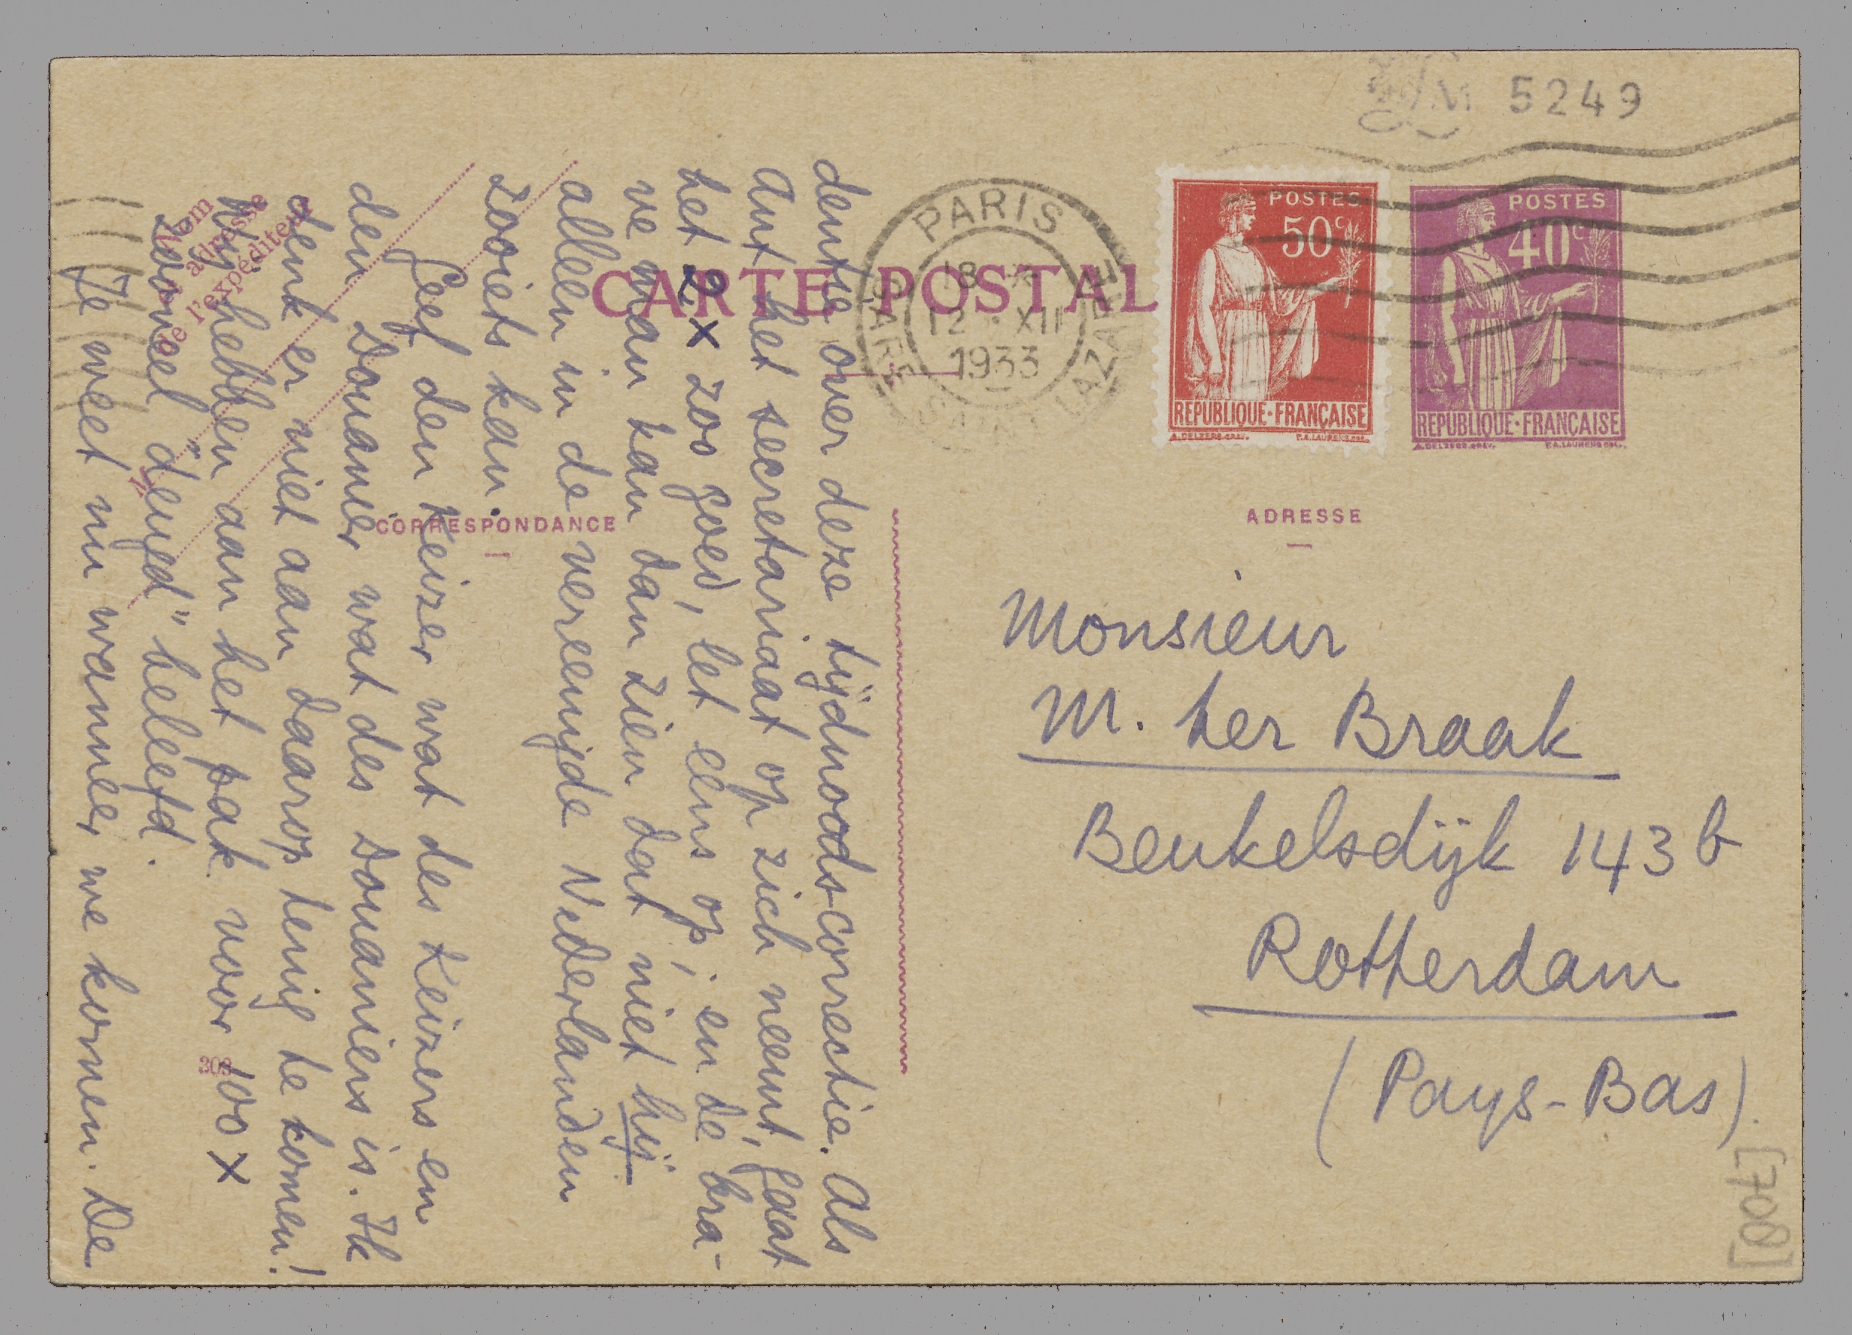 LM 5249
POSTES
50c
REPUBLIQUE·FRANÇAISE
POSTES
40c
REPUBLIQUE·FRANÇAISE
PARIS
18
12 · XII
1933
GARE SAINT LAZARE
CARTE POSTALE
CORRESPONDANCE
ADRESSE
Nom
adresse
de l'expéditeur
Monsieur
M. ter Braak
Beukelsdijk 143 b
Rotterdam
(Pays-Bas).
[700]
303
dentse over deze tijdnoodscorrectie. Als
Ant het secretariaat op zich neemt, gaat
het 2 x zoo goed, let eens op; en de bra-
ve man kan dán zien dat niet hij
alleen in de vereenigde Nederlanden
zooiets kan.
Geef den Keizer wat des Keizers en
den Douanier wat des Douaniers is. Ik
denk er niet aan daarop terug te komen!
Wij hebben aan het pak voor 100 x
zooveel "deugd" beleefd.
Je weet nu wanneer we komen. De